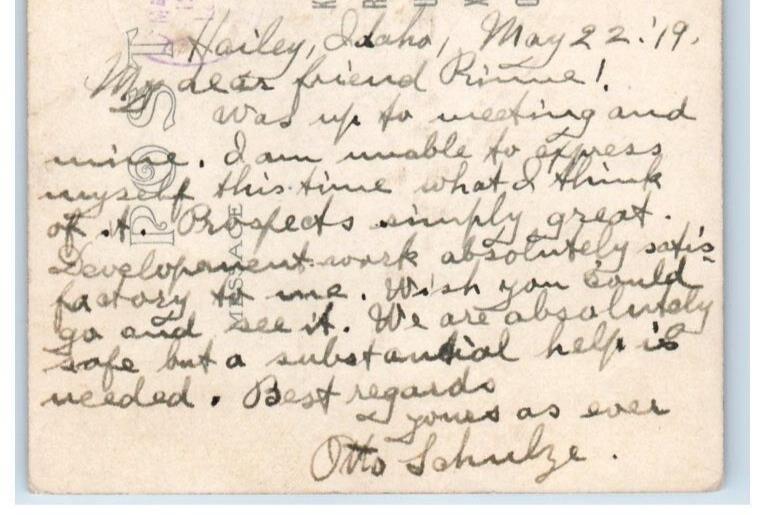 Hailey, Idaho, May 22.'19.
My dear friend Rinne!
Was up to meeting and
mine. I am unable to express
myself this time what I think
of it. Prospects simply great.
Development work absolutely satis-
factory to me. Wish you could
go and see it. We are absolutely
safe but a substantial help is
needed. Best regards
yours as ever
Otto Schulze.
POST
MESSAGE